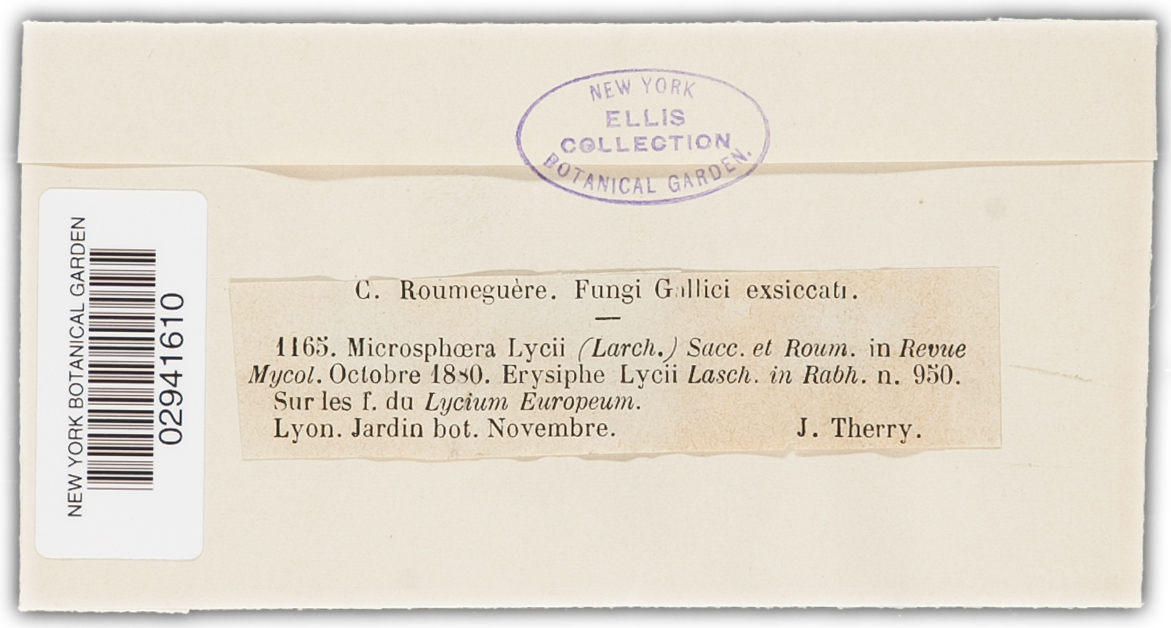 NEW YORK
ELLIS
COLLECTION
BOTANICAL GARDEN.
NEW YORK BOTANICAL GARDEN
02941610
C. Roumeguère. Fungi Gallici exsiccati.
1165. Microsphœra Lycii (Larch.) Sacc. et Roum. in Revue
Mycol. Octobre 1880. Erysiphe Lycii Lasch. in Rabh. n. 950.
Sur les f. du Lycium Europeum.
Lyon. Jardin bot. Novembre. J. Therry.